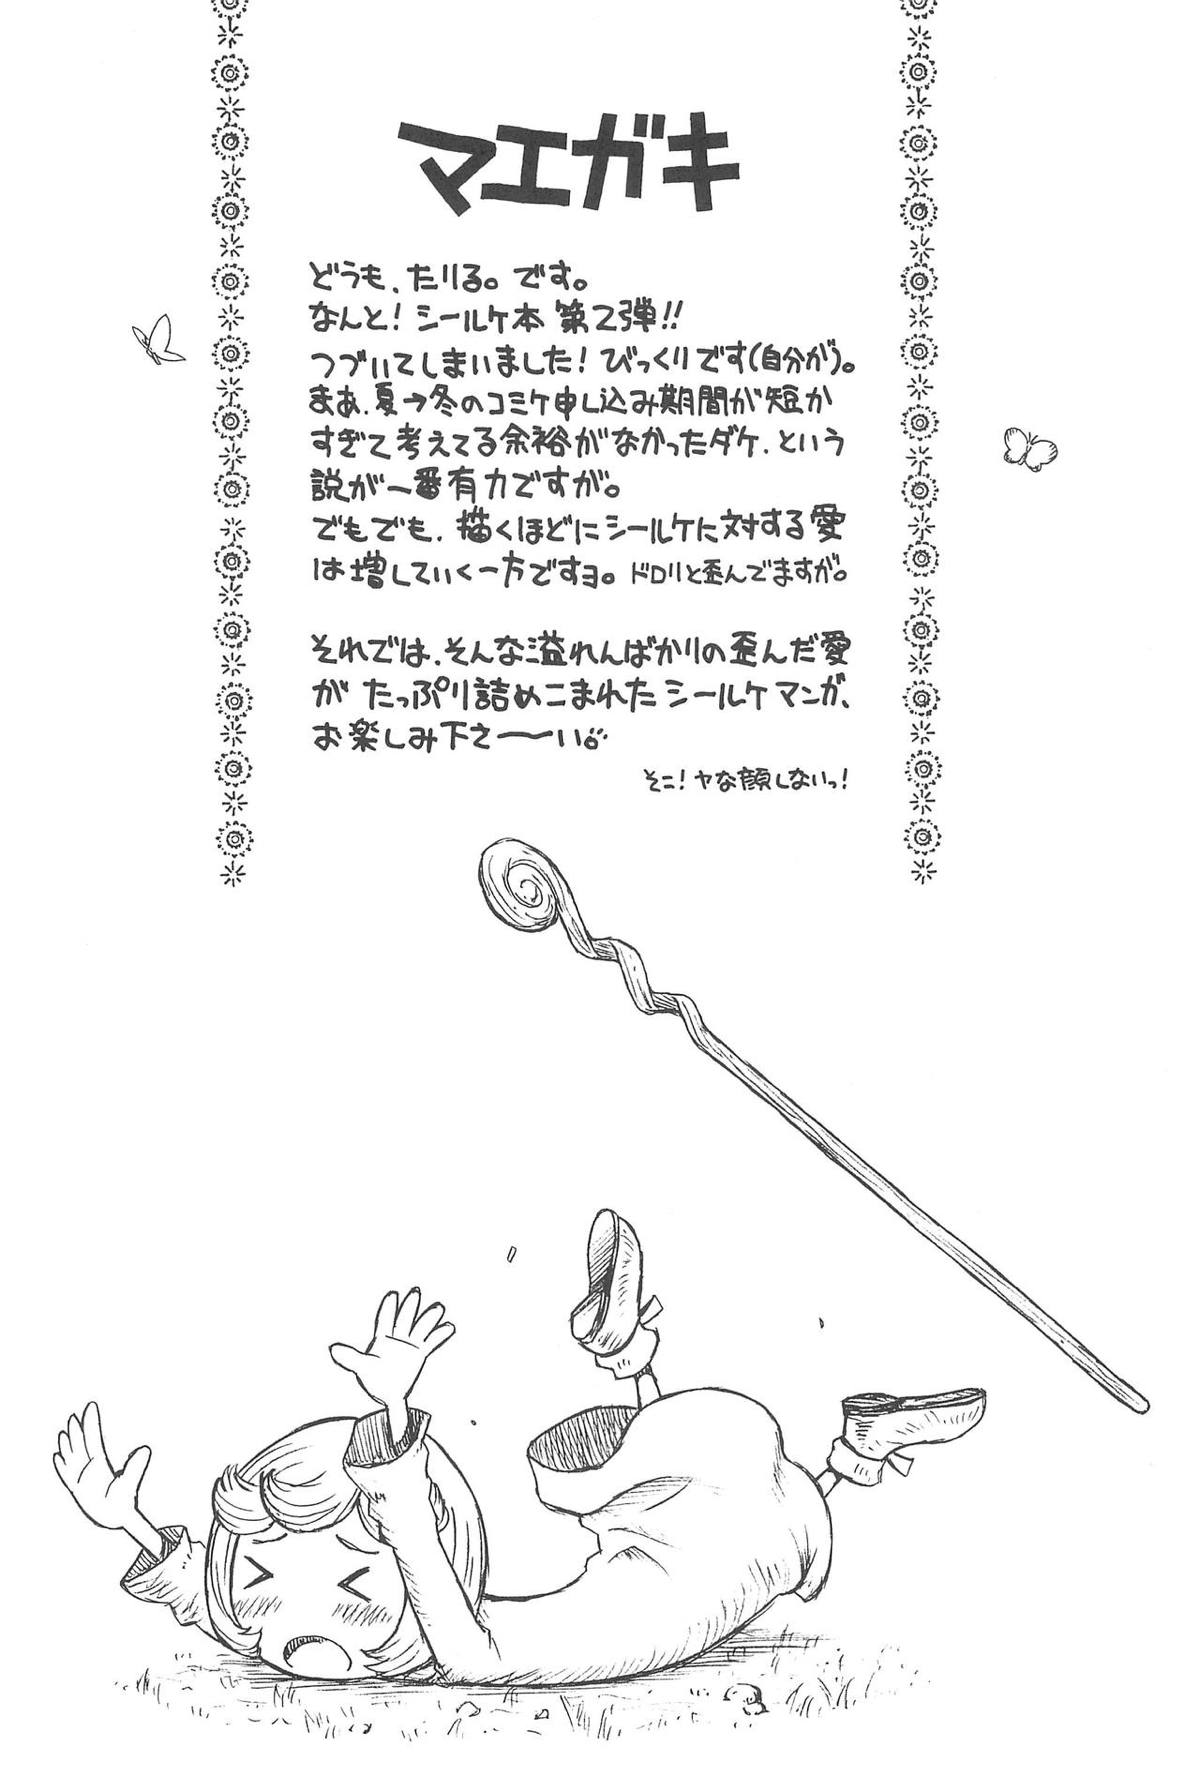 マエガキ
どうも、たりる。です。
なんと!シールケ本 第2弾!!
つづいてしまいました!びっくりです(自分が)。
まあ、夏→冬のコミケ申し込み期間が短か
すぎて考えてる余裕がなかったダケ、という
説が一番有力ですが。
でもでも、描くほどにシールケに対する愛
は増していく一方ですョ。ドロリと歪んでますが。
それでは、そんな溢れんばかりの歪んだ愛
が たっぷり詰めこまれたシールケマンガ、
お楽しみ下さ〜〜い♂
そこ!ヤな顔しないっ!